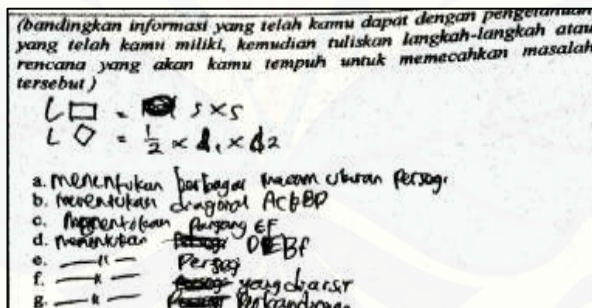 (bandingkan informasi yang telah kamu dapat dengan pengetahuan
yang telah kamu miliki, kemudian tuliskan langkah-langkah atau
rencana yang akan kamu tempuh untuk memecahkan masalah
tersebut)
L □ = s × s
L ◇ = 1/2 × d1 × d2
a. menentukan berbagai macam ukuran Persegi
b. menentukan diagonal AC & BD
c. Menentukan Panjang EF
d. Menentukan DEBF
e. —"— Persegi
f. —"— yang diarsir
g. —"— Perbandingan